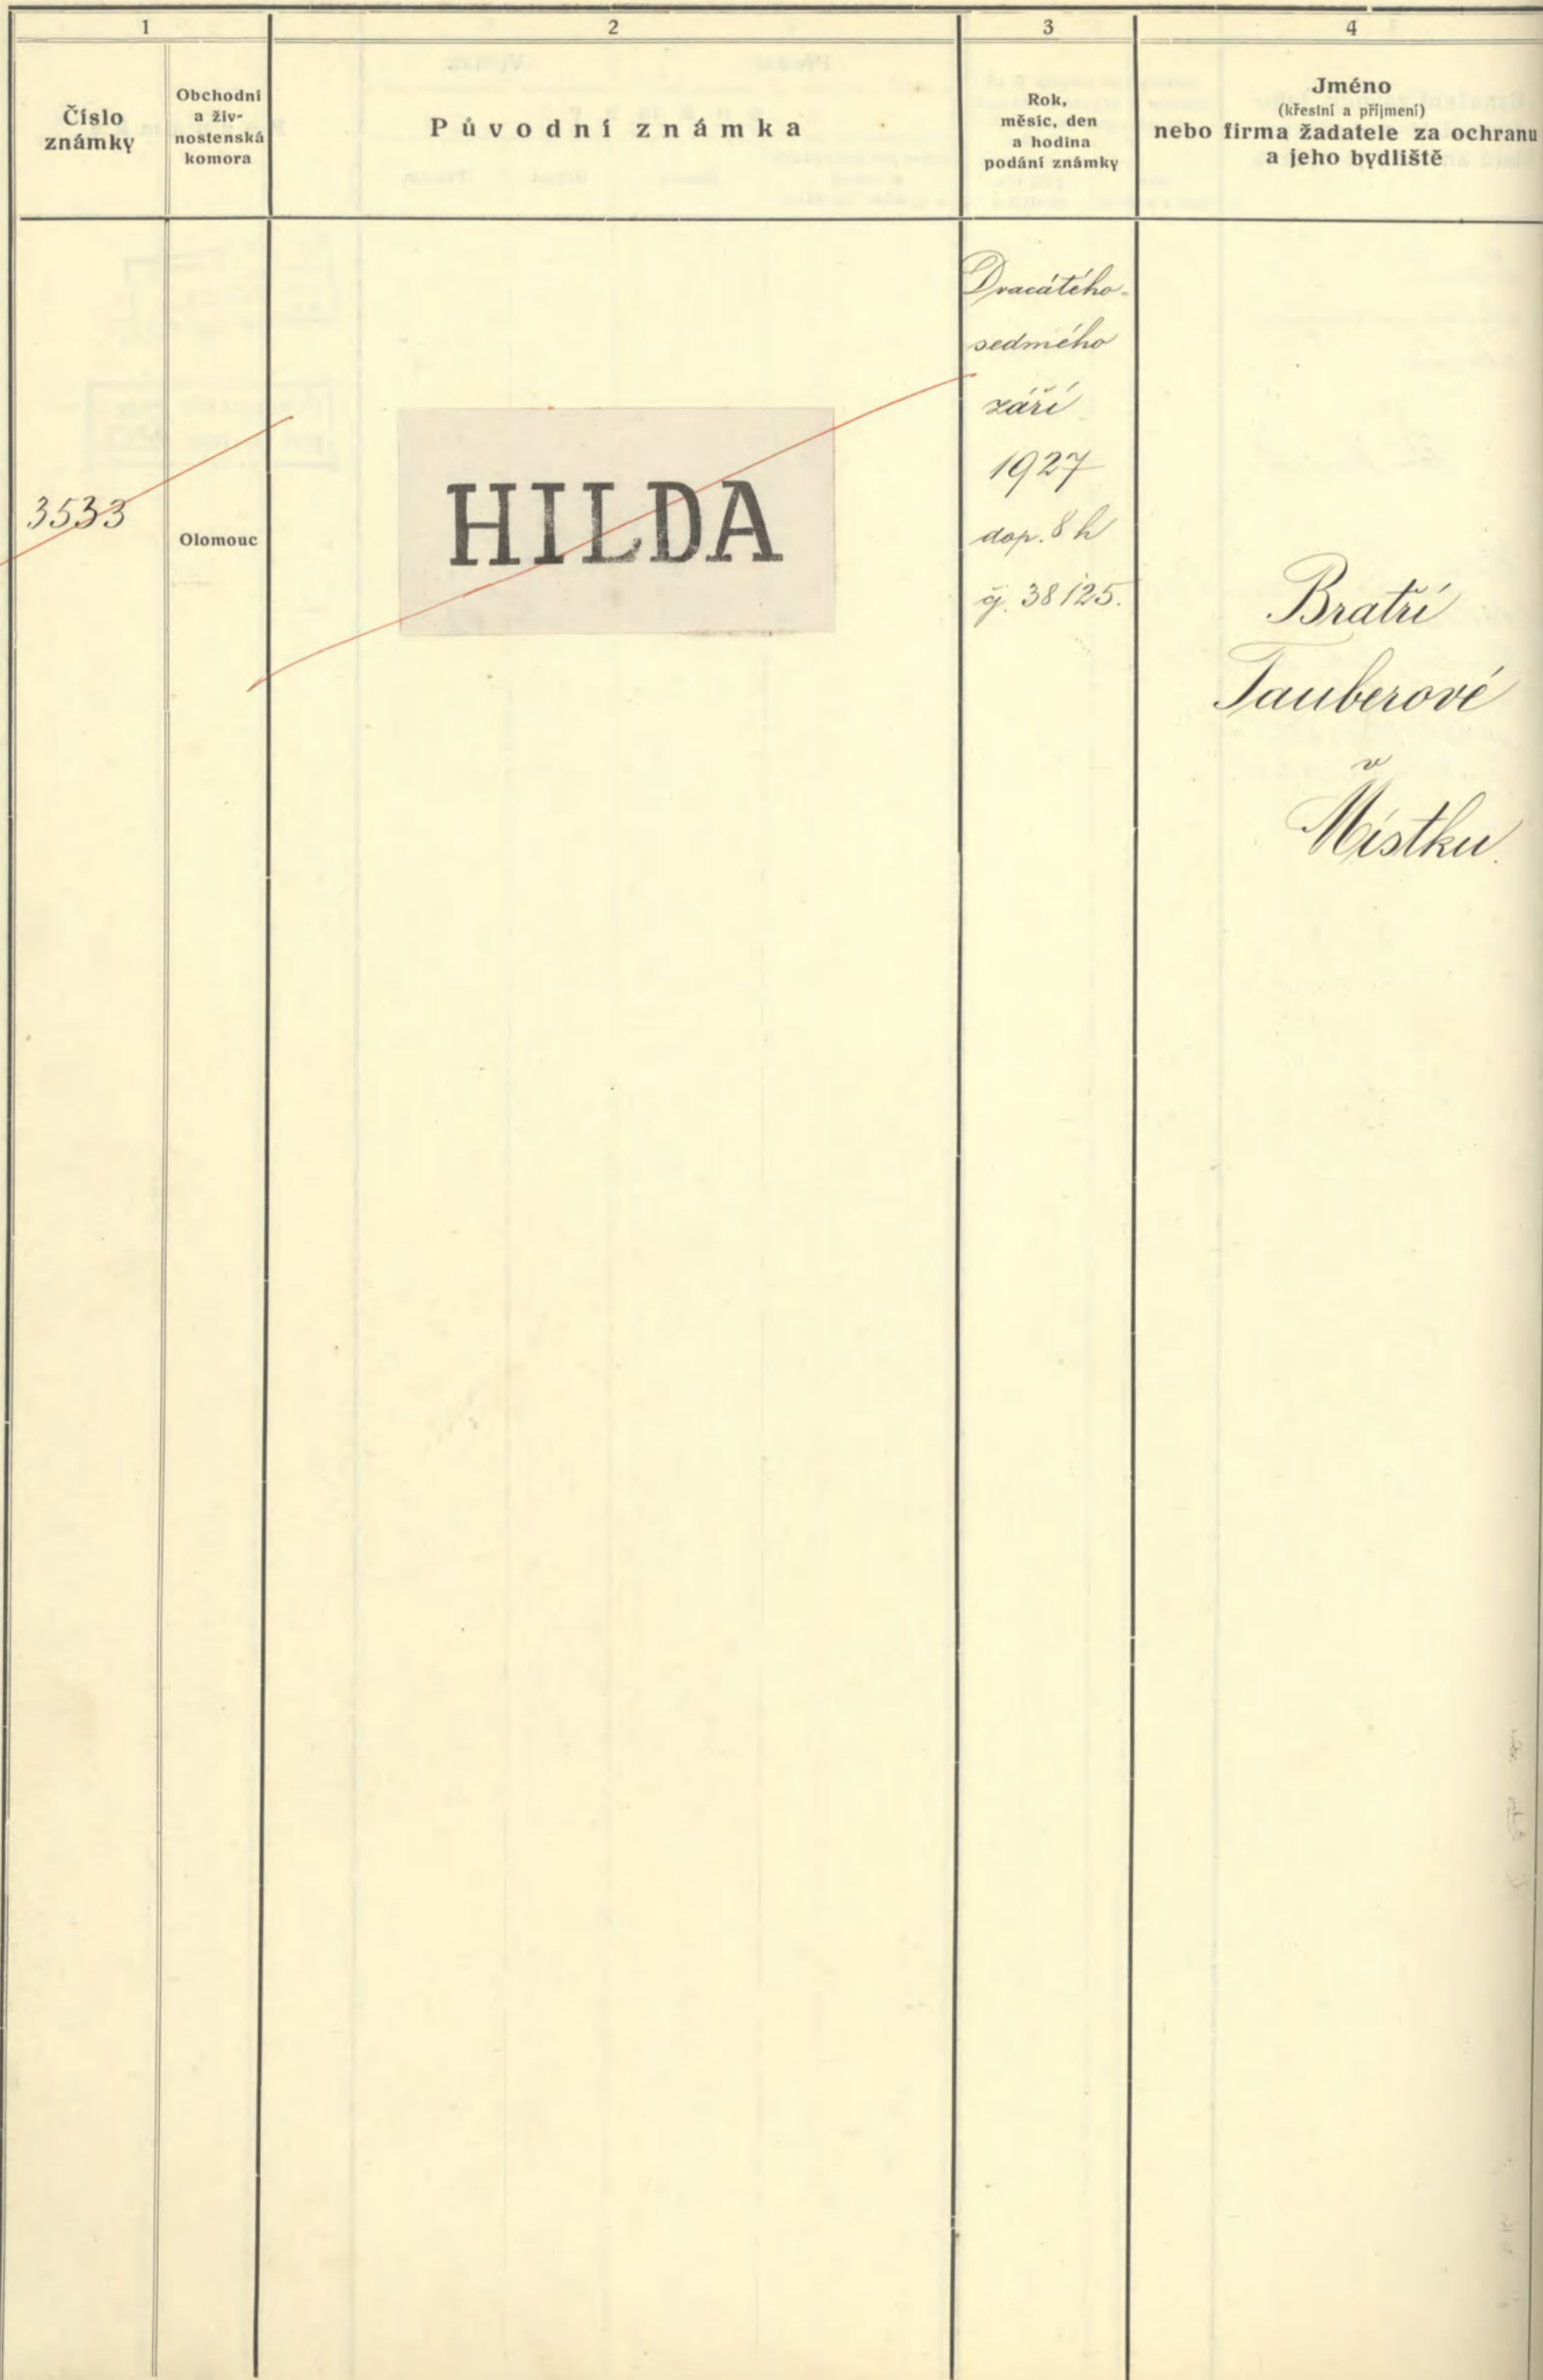 1
2
3
4
Číslo
známky
Obchodní
a živ-
nostenská
komora
Původní známka
Rok,
měsíc, den
a hodina
podání známky
Jméno
(křestní a příjmení)
nebo firma žadatele za ochranu
a jeho bydliště
3533
Olomouc
HILDA
Dvacátého-
sedmého
září
1927
dop. 8 h
čj. 38125.
Bratří
Tauberové
v
Místku.